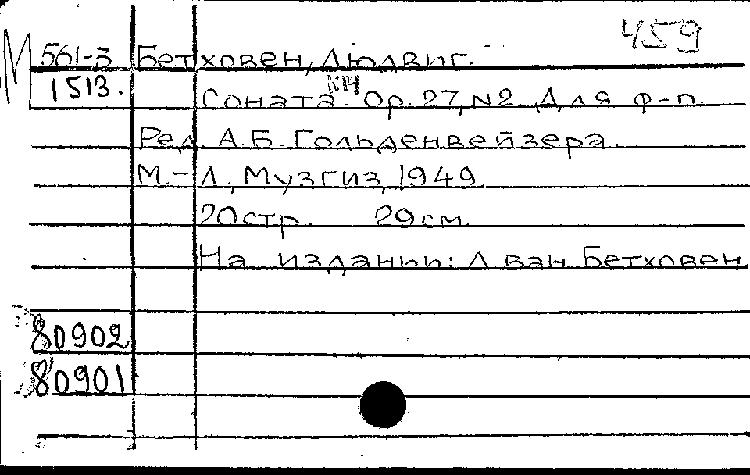 459
М 561-3 Бетховен, Людвиг.
1513. Соната №14 Op. 27, N2. Для ф-п.
Ред. А.Б. Гольденвейзера.
М.-Л., Музгиз, 1949
20стр. 29см.
На издании: Л ван Бетховен
80902
80901